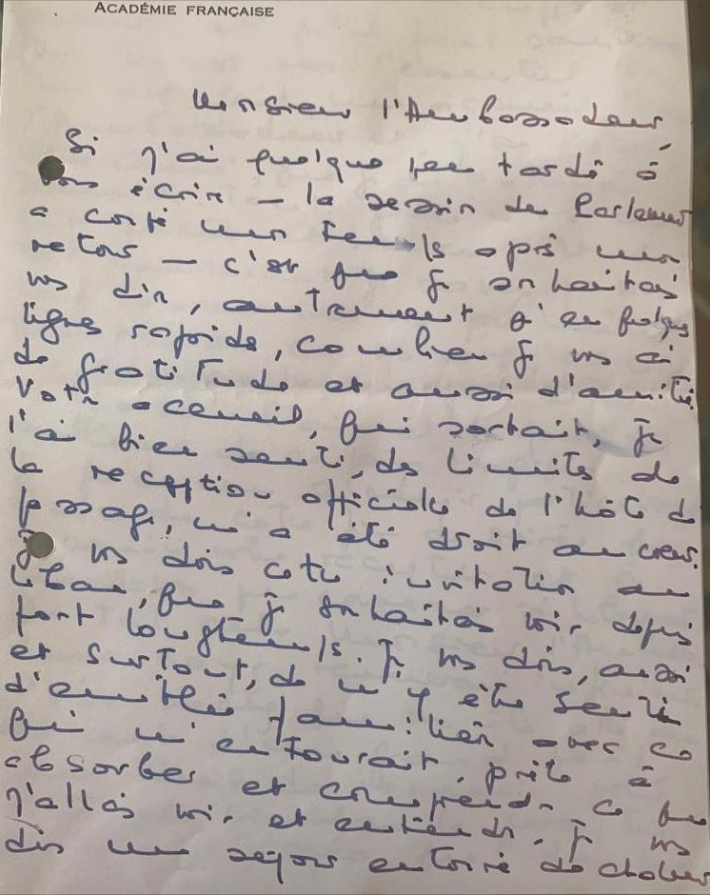 ACADÉMIE FRANÇAISE
Monsieur l'Ambassadeur,
Si j'ai quelque peu tardé à
vous écrire — la session du Parlement
a corsé mon temps après mon
retour — c'est que je souhaitais
vous dire, autrement qu'en quelques
lignes rapides, combien je vous ai
de gratitude et aussi d'amitié.
Votre accueil, qui sortait, je
l'ai bien senti, des limites de
la réception officielle de l'hôte de
passage, m'a été droit au cœur.
Je vous dois cette invitation au
Liban, que je souhaitais voir depuis
fort longtemps. Je vous dois, aussi
et surtout, de m'y être senti
d'emblée familier avec ce
qui m'entourait, prêt à
absorber et comprendre ce que
j'allais voir et entendre. Je vous
dois un séjour entouré de chaleur